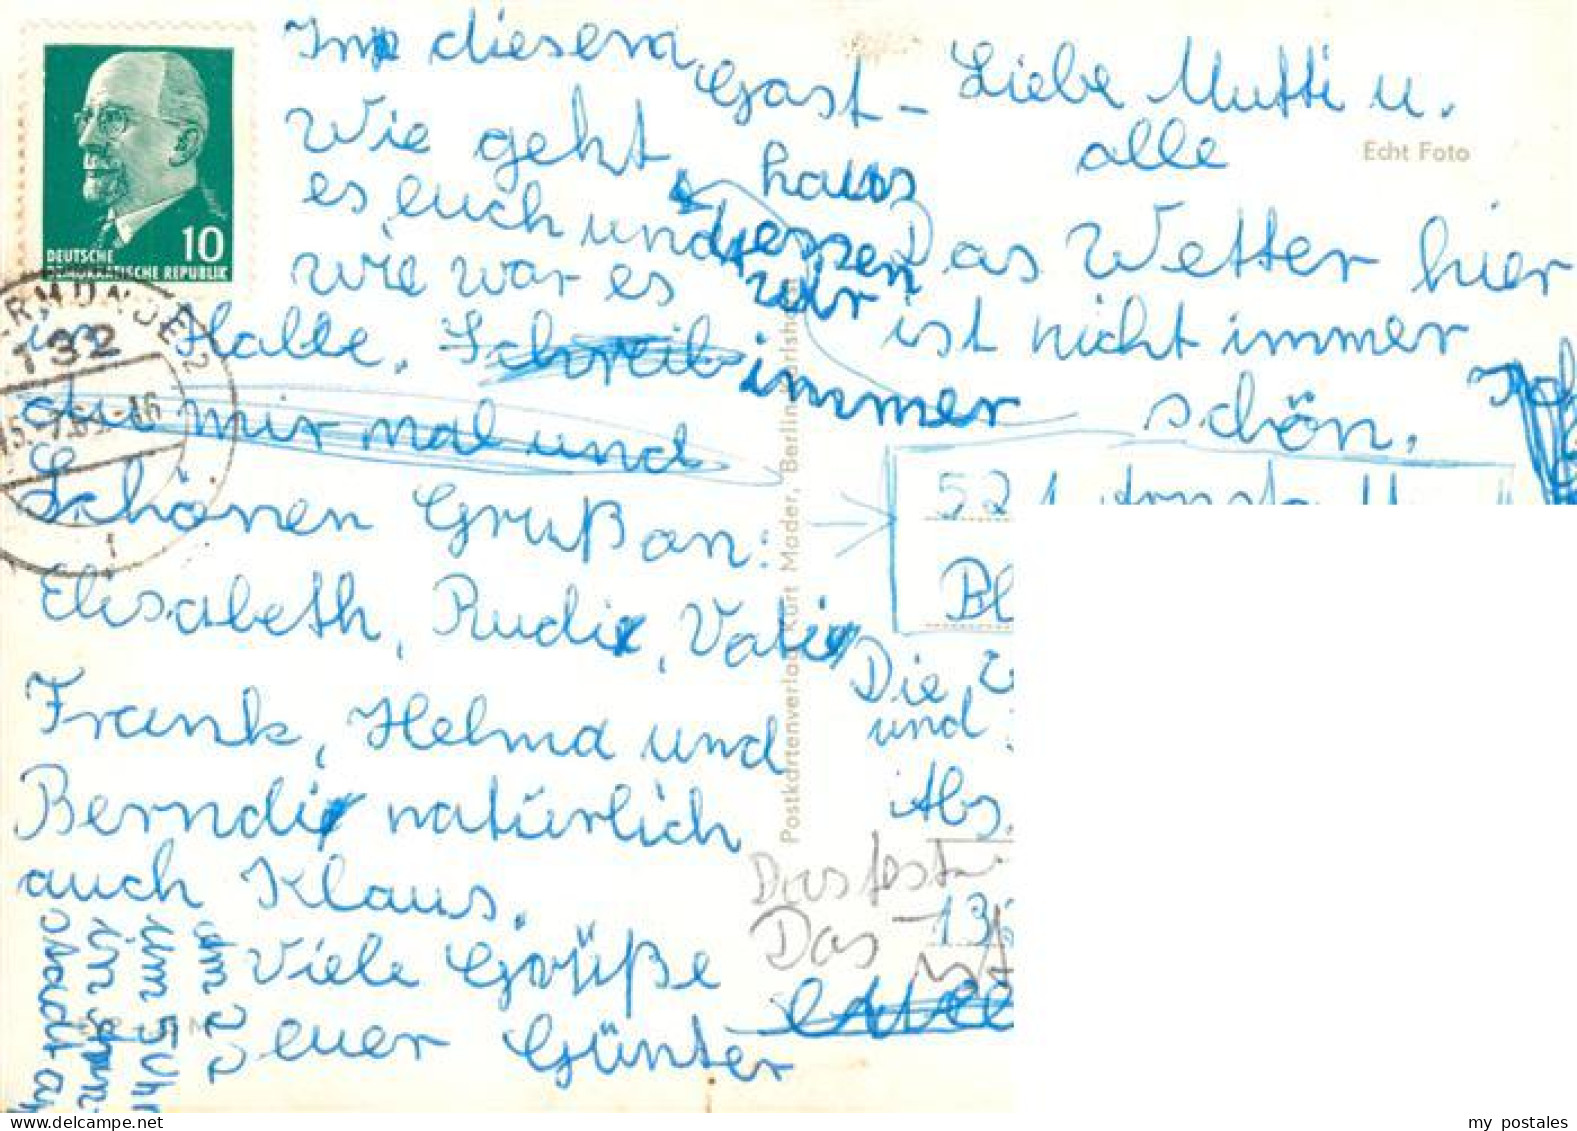 Liebe Mutti u.
alle
Das Wetter hier
ist nicht immer
schön.
Im diesem
Gast-
haus
essen
wir
immer
Wie geht
es euch und
wie war es
in Halle. Schreib
du mir mal und
Schönen Gruß an:
Elisabeth, Rudi, Vati
Frank, Helma und
Berndi natürlich
auch Klaus.
Viele Grüße
euer Günter
am 22
um 5 Uhr
in
521
Bl
Die
und
Abs.
Das fest
Das
13
Echt Foto
Postkartenverlag Kurt Mader, Berlin
10
DEUTSCHE
DEMOKRATISCHE REPUBLIK
132
my postales